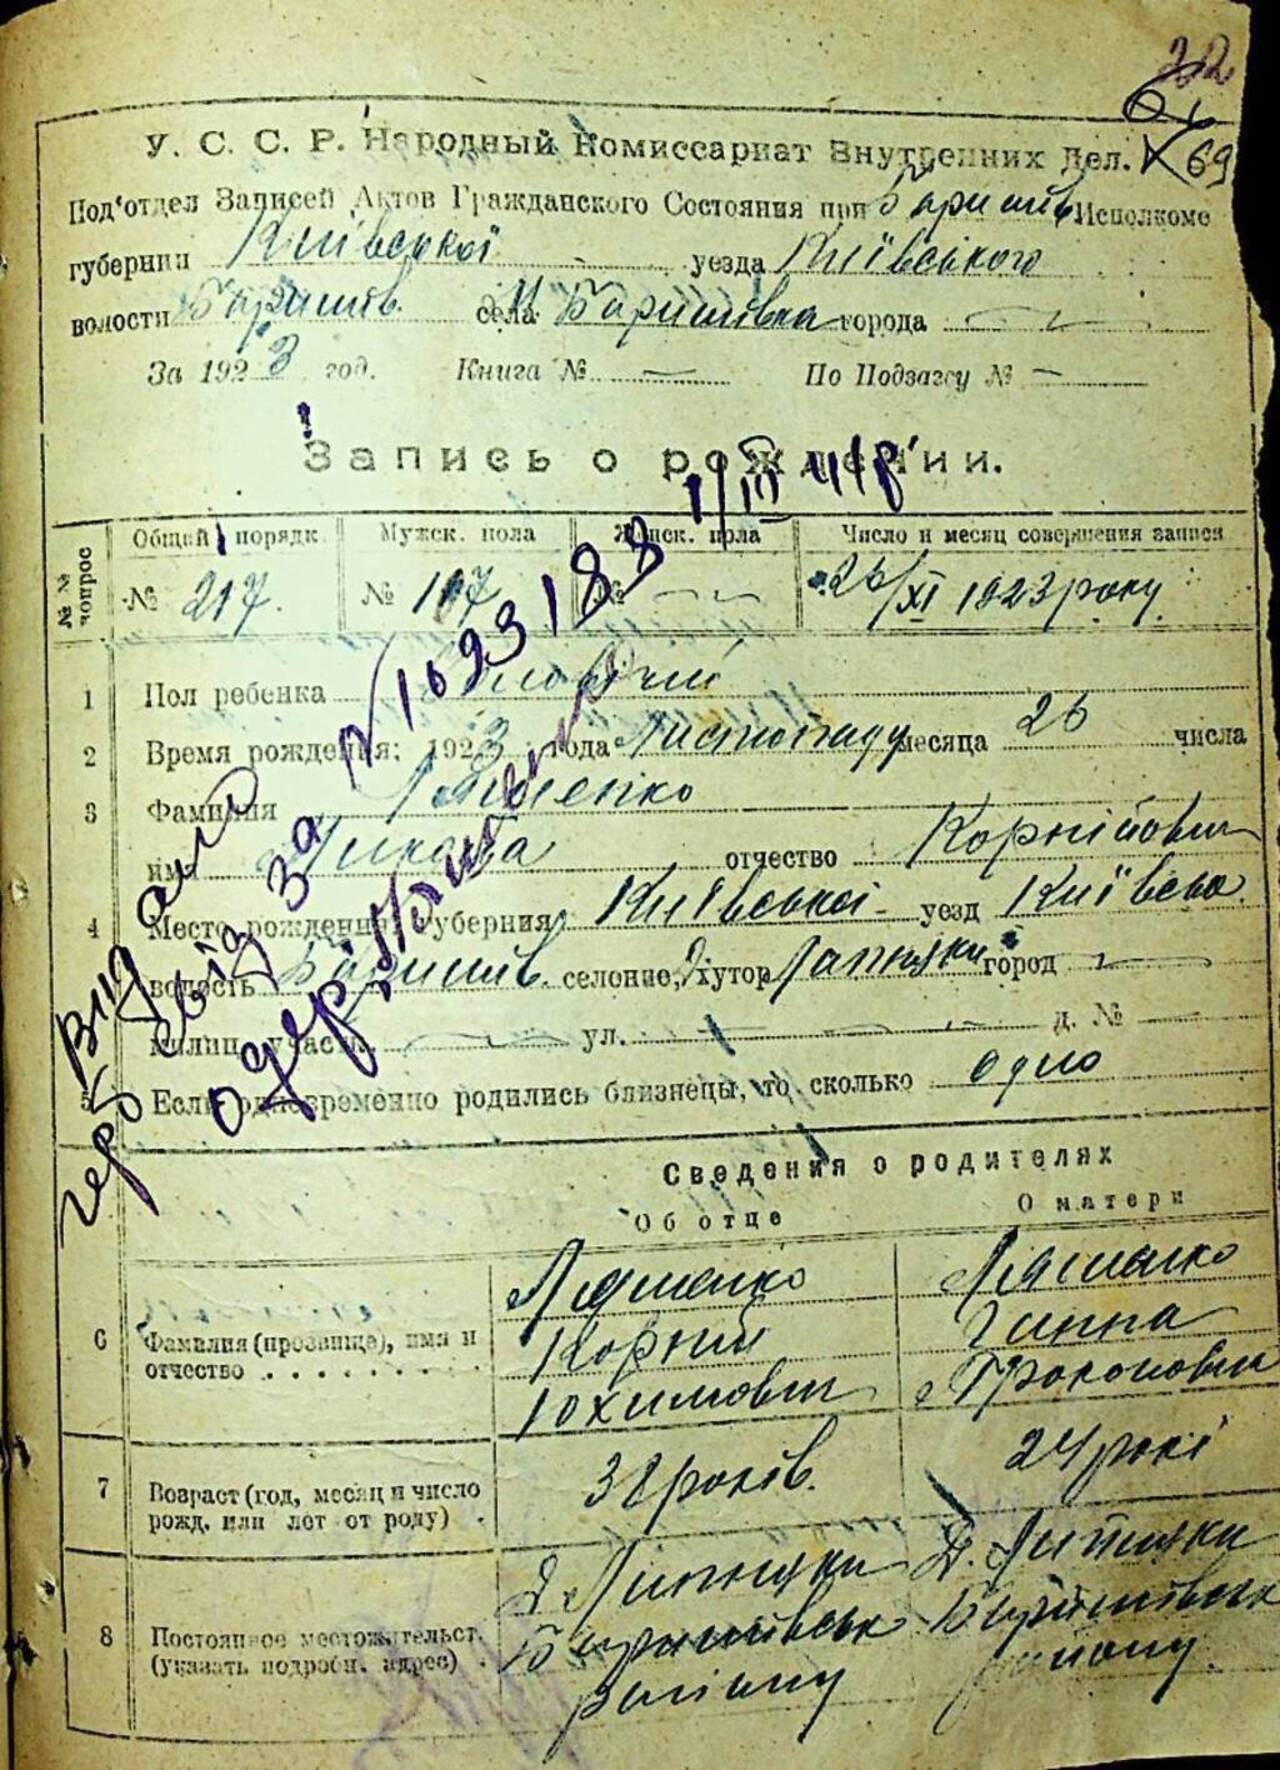 22
69
У. С. С. Р. Народный Комиссариат Внутренних Дел.
Под'отдел Записей Актов Гражданского Состояния при Баришів Исполкоме
губернии Київської уезда Київського
волости Баришів. села М. Баришівка города
За 1923 год. Книга № — По Подзагсу № —
Запись о рождении.
1/III 41р
№№ вопрос Общий порядк. Мужск. пола Женск. пола Число и месяц совершения записи
№ 217. № 107 № 26/XI 1923 року.
1 Пол ребенка
2 Время рождения: 1923 года Листопаду месяца 26 числа
3 Фамилия Ляшенко
имя Микола отчество Корнійович
4 Место рождения: Губерния Київської уезд Київськ.
волость Баришів. селение, хутор город
милиц. участ. ул. д. №
5 Если одновременно родились близнецы, то сколько одно
Видано
свід за
Сведения о родителях
Об отце О матери
6 Фамилия (прозвище), имя и отчество
Ляшенко Ляшенко
Корній Ганна
Юхимович Прокоповна
7 Возраст (год, месяц и число рожд. или лет от роду)
38 років. 24 рокі
8 Постоянное местожительст. (указать подробн. адрес)
Баришівськ Баришівськ
району району.